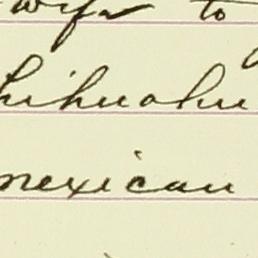 wife to
hihuahu
mexican